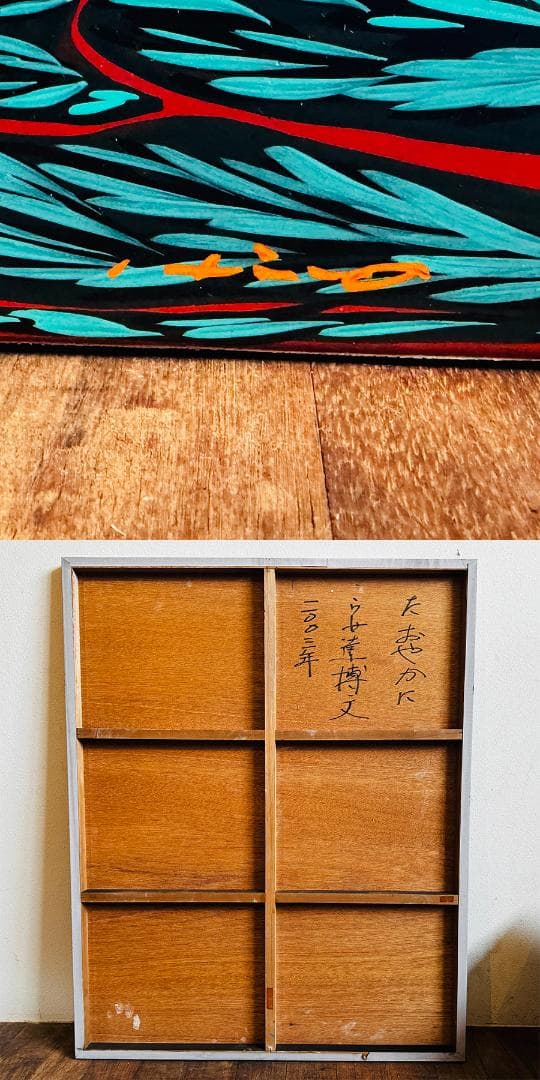 たおやかに
安達博文
二〇〇三年